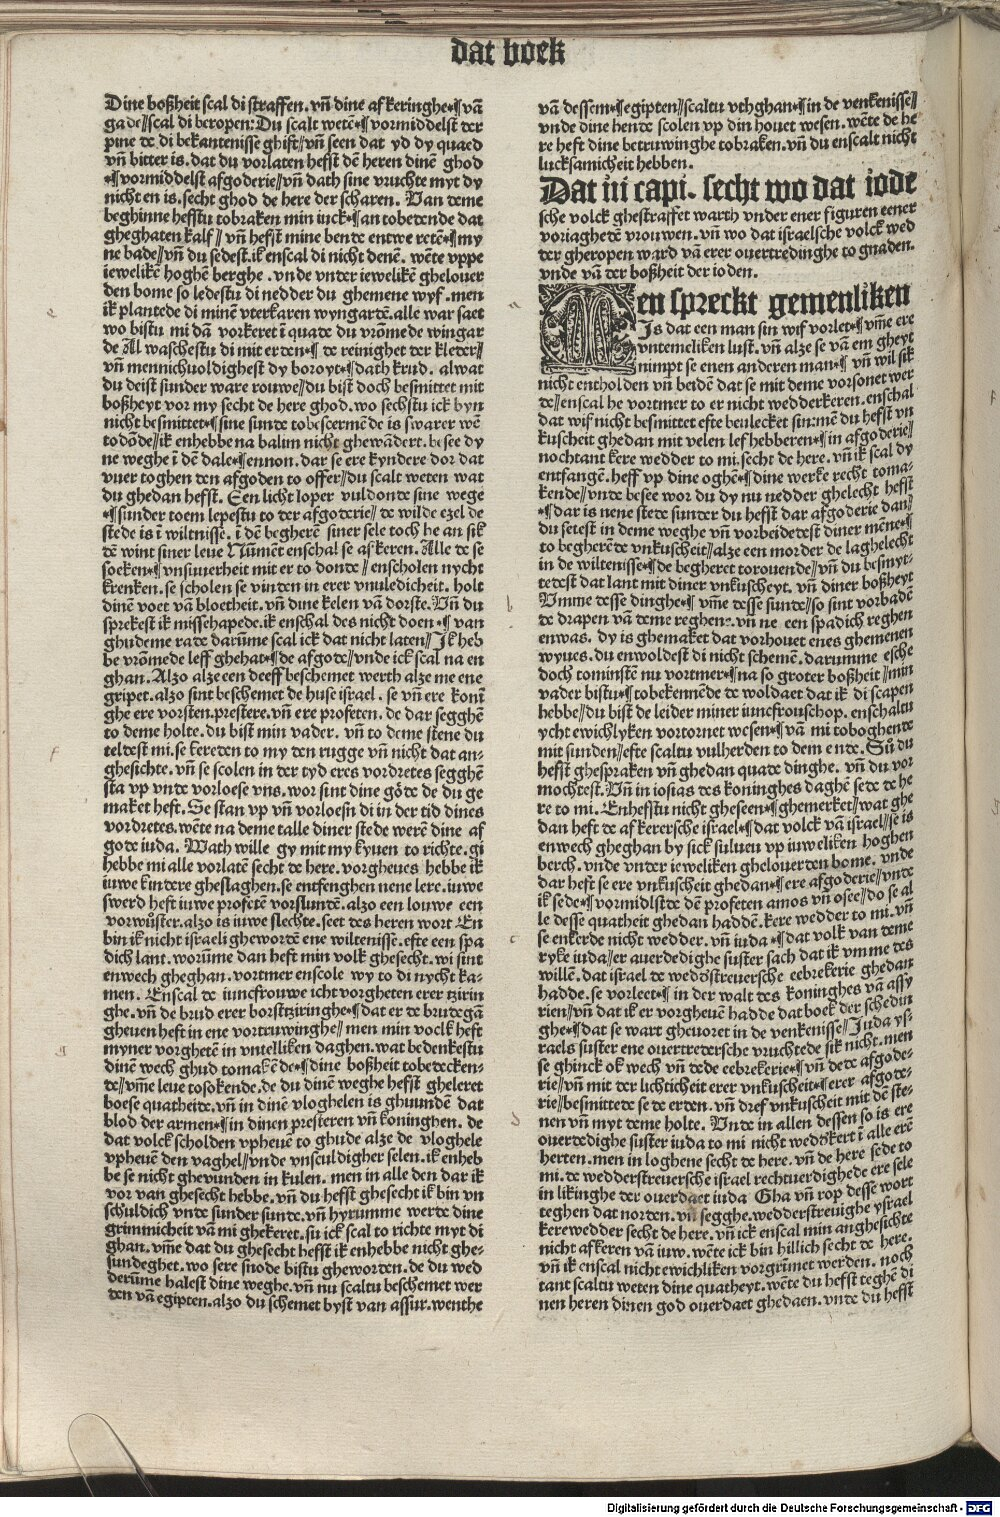 dat boek
Dine boßheit scal di straffen. vñ dine afkeringhe⁌ vã
gade//scal di beropen: Du scalt wetē⁌ vormiddelst der
pine de di bekantenisse ghift//vñ seen dat yd dy quaed
vñ bitter is. dat du vorlaten hefst dē heren dinē ghod
⁌vormiddelst afgoderie//vñ dath sine vruchte myt dy
nicht en is. secht ghod de here der scharen. Van deme
beghinne hefstu tobraken min iuck⁌ an tobedende dat
gheghaten kalf// vñ hefst mine bende entwe retē⁌ my
ne bade//vñ du sedest. ik enscal di nicht denē. wēte vppe
iewelikē hoghē berghe. vnde vnder ieweliken ghelouer
den bome so ledestu di nedder du ghemene wyf. men
ik plantede di minē vterkaren wyngardē. alle war saet
wo bistu mi dā vorkeret ī quade du vrōmede wingar
de Al waschestu di mit erden⁌ de reinighet der kleder//
vñ mennichuoldighest dy boroyt⁌dath krud. alwat
du deist sunder ware rouwe//du bist doch besmittet mit
boßheyt vor my secht de here ghod. wo sechstu ick byn
nicht besmittet⁌ sine sunde tobescermēde is swarer wē
to dōde//ik enhebbe na balim nicht ghewādert. besee dy
ne weghe ī dē dale⁌ennon. dar se ere kyndere dor dat
vuer toghen den afgoden to offer//du scalt weten wat
du ghedan hefst. Een licht loper vuldonde sine wege
⁌sunder toem lepestu to der afgoderie// de wilde ezel de
stede is ī wiltnisse. ī dē begherē siner sele toch he an sik
dē wint siner leue Nūmēt enschal se afkeren. Alle de se
soeken⁌vnsuuerheit mit er to donde// enscholen nycht
krenken. se scholen se vinden in erer vnuledicheit. holt
dinē voet vā bloetheit. vñ dine kelen vā dorste. Vñ du
sprekest ik missehapede. ik enschal des nicht doen⁌ van
ghudeme rade darūme scal ick dat nicht laten//Ik heb
be vrōmede leff ghehat⁌de afgode//vnde ick scal na en
ghan. Alzo alze een deeff beschemet werth alze me ene
gripet. alzo sint beschemet de huse israel. se vñ ere konī
ghe ere vorsten. prestere. vñ ere profeten. de dar segghē
to deme holte. du bist min vader. vñ to deme stene du
teldest mi. se kereden to my den rugge vñ nicht dat an-
ghesichte. vñ se scolen in der tyd eres vordretes segghē
sta vp vnde vorloese vns. wor sint dine gōde de du ge
maket heft. Se stan vp vñ vorloesn di in der tid dines
vordretes. wēte na deme talle diner stede werē dine af
gode iuda. Wath wille gy mit my kyuen to richte. gi
hebbe mi alle vorlatē secht de here. vorgheues hebbe ik
iuwe kindere gheslaghen. se entfenghen nene lere. iuwe
swerd heft iuwe profetē vorsluntē. alzo een louwe een
vorwůster. alzo is iuwe slechte. seet des heren wort En
bin ik nicht israeli ghewordē ene wiltenisse. efte een spa
dich lant. worūme dan heft min volk ghesecht. wi sint
enwech gheghan. vortmer enscole wy to di nycht ka-
men. Enscal de iuncfrouwe icht vorgheten erer tzirin
ghe. vñ de brud erer borsttziringhe⁌dat er de brudegā
gheuen heft in ene vortruwinghe// men min voclk heft
myner vorghetē in vntelliken daghen. wat bedenkestu
dinē wech ghud tomakēde⁌dine boßheit tobedecken-
de//vm̄e leue tosokende. de du dinē weghe hefst gheleret
boese quatheide. vñ in dinē vloghelen is ghuundē dat
blod der armen⁌in dinen presteren vñ koninghen. de
dat volck scholden vpheuē to ghude alze de vloghele
vpheuē den vaghel//vnde vnsculdigher selen. ik enheb
be se nicht ghevunden in kulen. men in alle den dar ik
vor van ghesecht hebbe. vñ du hefst ghesecht ik bin vn
schuldich vnde sunder sunde. vñ hyrumme werde dine
grimmicheit vā mi ghekeret. su ick scal to richte myt di
ghan. vm̄e dat du ghesecht hefst ik enhebbe nicht ghe-
sundeghet. wo sere snode bistu gheworden. de du wed
derūme halest dine weghe. vñ nu scaltu beschemet wer
den vā egipten. alzo du schemet byst van assur. wenthe
vā dessem⁌egipten//scaltu vthghan⁌in de venkenisse//
vnde dine hende scolen vp din houet wesen. wēte de he
re heft dine betruwinghe tobraken. vñ du enscalt nicht
lucksamicheit hebben.
Dat iii capi. secht wo dat iode
sche volck ghestraffet warth vnder ener figuren eener
voriaghedē vrouwen. vñ wo dat israelsche volck wed
der gheropen ward vā erer ouertredinghe to gnaden.
vnde vā der boßheit der ioden.
Men spreckt gemenliken
Is dat een man sin wif vorlet⁌vm̄e ere
vntemeliken lust. vñ alze se vā em gheyt
nimpt se enen anderen man⁌ vñ wil sik
nicht entholden vñ beidē dat se mit deme vorsonet wer
de//enscal he vortmer to er nicht wedderkeren. enschal
dat wif nicht besmittet efte beulecket sin: mē du hefst vn
kuscheit ghedan mit velen lef hebberen⁌in afgoderie//
nochtant kere wedder to mi. secht de here. vñ ik scal dy
entfangē. heff vp dine oghē⁌dine werke recht toma-
kende//vnde besee wor du dy nu nedder ghelecht hefst
⁌dar is nene stede sunder du hefst dar afgoderie dan//
du setest in deme weghe vñ vorbeidedest diner mēne⁌
to begherēde vnkuscheit//alze een morder de laghelecht
in de wiltenisse⁌de begheret torouende//vñ du besmyt-
tedest dat lant mit diner vnkuscheyt. vñ diner boßheyt
Vmme desse dinghe⁌ vm̄e desse sunde//so sint vorbadē
de drapen vā deme reghene. vñ ne een spadich reghen
enwas. dy is ghemaket dat vorhouet enes ghemenen
wyues. du enwoldest di nicht schemē. darumme esche
doch tominstē nu vortmer⁌na so groter boßheit//min
vader bistu⁌tobekennēde de woldaet dat ik di scapen
hebbe//du bist de leider miner iuncfrouschop. enschaltu
ycht ewichlyken vortornet wesen⁌vā mi toboghende
mit sunden//efte scaltu vulherden to dem ende. Sů du
hefst ghespraken vñ ghedan quade dinghe. vñ du vor
mochtest. Vñ in iosias des koninghes daghē sede de he
re to mi. Enhefstu nicht gheseen⁌ghemerket//wat ghe
dan heft de afkerersche israel⁌dat volck vā israel//se is
enwech gheghan by sick suluen vp iuweliken hoghen
berch. vnde vnder ieweliken ghelouerden bome. vnde
dar heft se ere vnkuscheit ghedan⁌ere afgoderie//vnde
ik sede⁌vormidlstde dē profeten amos vñ osee//do se al
le desse quatheit ghedan haddē. kere wedder to mi. vñ
se enkerde nicht wedder. vñ iuda⁌dat volk van deme
ryke iuda//er auerdedighe suster sach dat ik vmme des
willē. dat israel de weddōstreuersche eebrekerie ghedan
hadde. se vorleet⁌ in der walt des koninghes vā assy
rien//vñ dat ik er vorgheuē hadde dat boek der schedin
ghe⁌dat se wart gheuoret in de venkenisse//Iuda ys-
raels suster ene ouertredersche vruchtede sik nicht. men
se ghinck ok wech vñ dede eebrekerie⁌ vñ dede afgode-
rie//vñ mit der lichticheit erer vnkuscheit⁌erer afgode-
rie//besmittede se de erden. vñ dref vnkuscheit mit dē ste-
nen vñ myt deme holte. Vnde in allen dessen so is ere
ouerdedighe suster iuda to mi nicht weddōkert ī alle erē
herten. men in loghene secht de here. vñ de here sede to
mi. de wedderstreuersche israel rechtuerdighede ere sele
in likinghe der ouerdaet iuda Gha vñ rop desse wort
teghen dat norden. vñ segghe. wedderstreuighe ysrael
kere wedder secht de here. vñ ick enscal min anghesichte
nicht afkeren vā iuw. wēte ick bin hillich secht de here.
vñ ik enscal nicht ewichliken vorgrīmet werden. noch
tant scaltu weten dine quatheyt. wēte du hefst teghē di
nen heren dinen god ouerdaet ghedaen. vnde du hefst
Digitalisierung gefördert durch die Deutsche Forschungsgemeinschaft - DFG